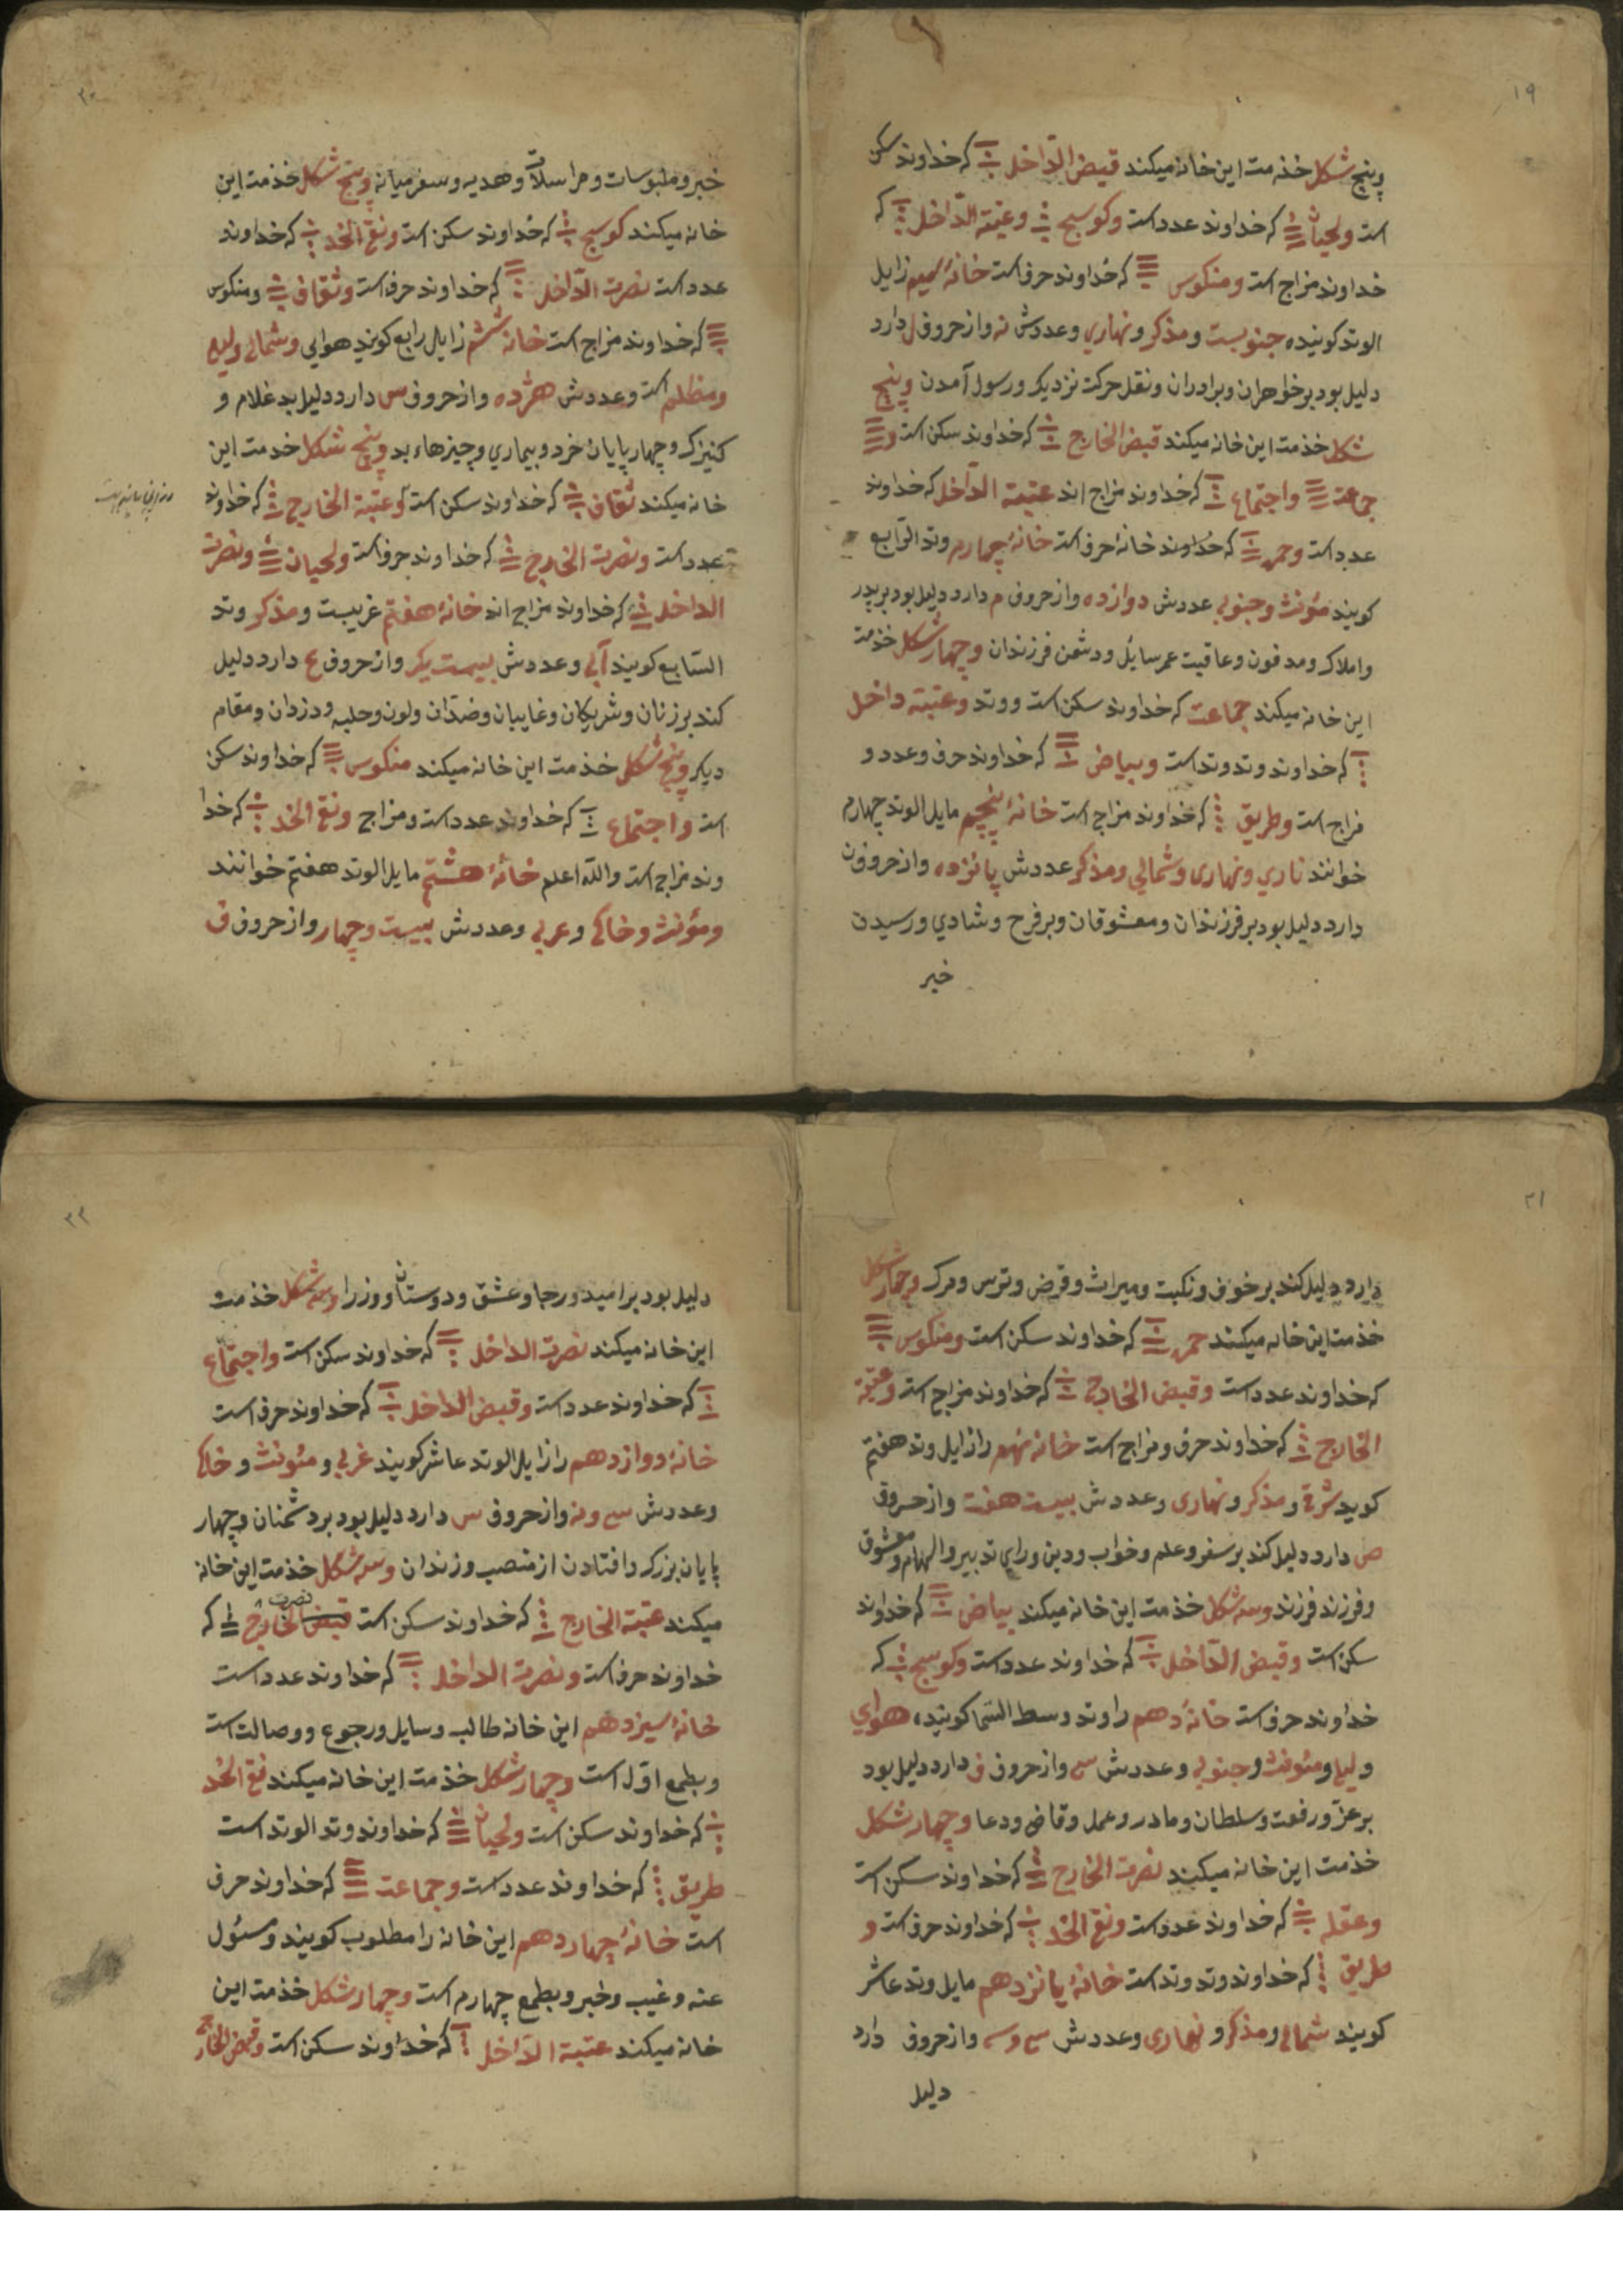 ۱۹
وپنج شکل خذمت این خانه میکند قبض الداخل که خداوند سکن
است ولحیان که خداوند عدد است وکوسج وعتبة الداخل که
خداوند مزاج است ومنکوس که خداوند حرف است خانهٔ سیم زایل
الوتد کویند جنوبیست ومذکر ونهاری وعددش نه واز حروف ل دارد
دلیل بود بر خواهران وبرادران ونقل حرکت نزدیک ورسول آمدن وپنج
شکل خذمت این خانه میکند قبض الخارج که خداوند سکن است و
جماعت واجتماع که خداوند مزاج اند عتبة الداخل که خداوند
عدد است وحمره که خداوند خانهٔ حرف است خانهٔ چهارم وتد الرابع
کویند مؤنث وجنوبی عددش دوازده واز حروف م دارد دلیل بود بر پدر
واملاک ومدفون وعاقبت عمر سایل ودشمن فرزندان وچهار شکل خذمت
این خانه میکند جماعت که خداوند سکن است ووتد وعتبة داخل
که خداوند وتد وتد است وبیاض که خداوند حرف وعدد و
مزاج است وطریق که خداوند مزاج است خانهٔ پنجم مایل الوتد چهارم
خوانند ناری ونهاری وشمالی ومذکر عددش پانزده واز حروف ن
دارد دلیل بود بر فرزندان ومعشوقان وبر فرح وشادی ورسیدن
خبر
۲۰
خبر وملبوسات ومراسلات وهدیه وسفر میانه وپنج شکل خذمت این
خانه میکند کوسج که خداوند سکن است ونقی الخد که خداوند
عدد است نصرت الداخل که خداوند حرف است وثقاف ومنکوس
که خداوند مزاج است خانهٔ ششم زایل رابع کویند هوایی وشمالی ولیلی
ومظلم است وعددش هژده واز حروف س دارد دلیل بد غلام و
کنیزک وچهار پایان خرد وبیماری وچیزهاء بد وپنج شکل خدمت این
خانه میکند ثقاف که خداوند سکن است وعتبة الخارج که خداوند
عدد است ونصرت الخارج که خداوند حرف است ولحیان ونصرت
الداخل که خداوند مزاج اند خانهٔ هفتم غربیست ومذکر وتد
السابع کویند آبی وعددش بیست یک واز حروف ع دارد دلیل
کند بر زنان وشریکان وغایبان وضدان ولون وحلیه ودزدان ومقام
دیکر وپنج شکل خذمت این خانه میکند منکوس که خداوند سکن
است واجتماع که خداوند عدد است ومزاج ونقی الخد که خدا
وند مزاج است والله اعلم خانهٔ هشتم مایل الوتد هفتم خوانند
ومؤنث وخاکی وغربی وعددش بیست وچهار واز حروف ف
۲۱
دارد دلیل کند بر خوف ونکبت ومیراث وقرض وترس ومرک وچهار شکل
خذمت این خانه میکند حمره که خداوند سکن است ومنکوس
که خداوند عدد است وقبض الخارج که خداوند مزاج است وعتبة
الخارج که خداوند حرف ومزاج است خانه نهم را زایل وتد هفتم
کوید شرقی ومذکر ونهاری وعددش بیست هفت واز حروف
ص دارد دلیل کند بر سفر وعلم وخواب ودین ورای تدبیر والهام ومعشوق
وفرزند فرزند وسه شکل خذمت این خانه میکند بیاض که خداوند
سکن است وقبض الداخل که خداوند عدد است وکوسج که
خداوند حرف است خانهٔ دهم را وتد وسط السما کویند هوای
ولیلی ومئونث وجنوبی وعددش سی واز حروف ق دارد دلیل بود
بر عز ورفعت وسلطان ومادر وعمل وقاضی ودعا وچهار شکل
خذمت این خانه میکند نصرت الخارج که خداوند سکن است
وعقله که خداوند عدد است ونقی الخد که خداوند حرف است و
طریق که خداوند وتد وتد است خانهٔ یانزدهم مایل وتد عاشر
کویند شمالی ومذکر ونهاری وعددش سی وسه واز حروف دارد
دلیل
۲۲
دلیل بود بر امید ورجا وعشق ودوستان ووزرا وسه شکل خذمت
این خانه میکند نصرت الداخل که خداوند سکن است واجتماع
که خداوند عدد است وقبض الداخل که خداوند حرف است
خانهٔ دوازدهم را زایل الوتد عاشر کویند غربی ومئونث وخاکی
وعددش سی ونه واز حروف س دارد دلیل بود بر دشمنان وچهار
پایان بزرک وافتادن از منصب وزندان وسه شکل خذمت این خانه
میکند عتبة الخارج که خداوند سکن است نصرت الخارج که
خداوند حرف است ونصرت الداخل که خداوند عدد است
خانهٔ سیزدهم این خانه طالب وسایل ورجوع ووصالت است
وبطبع اول است وچهار شکل خذمت این خانه میکند نقی الخد
که خداوند سکن است ولحیان که خداوند وتد الوتد است
طریق که خداوند عدد است وجماعت که خداوند حرف
است خانهٔ چهاردهم این خانه را مطلوب کویند ومسئول
عنه وغیب وخبر وبطبع چهارم است وچهار شکل خذمت این
خانه میکند عتبة الداخل که خداوند سکن است وقبض الخارج